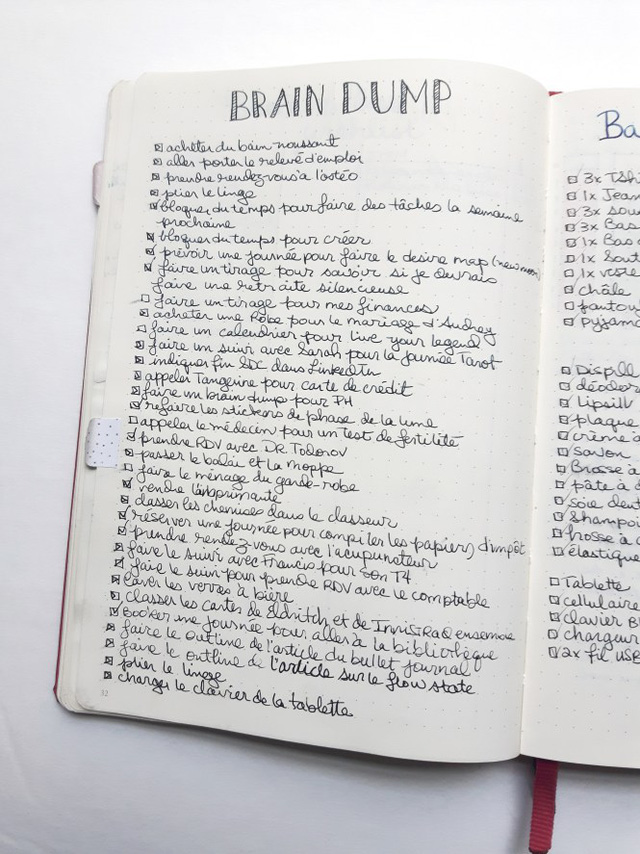 BRAIN DUMP
acheter du bain moussant
aller porter le relevé d'emploi
prendre rendez-vous à l'ostéo
plier le linge
bloquer du temps pour faire des tâches la semaine
prochaine
bloquer du temps pour créer
prévoir une journée pour faire le desire map (new moon
faire un tirage pour savoir si je devrais
faire une retraite silencieuse
faire un tirage pour mes finances
acheter une Robe pour le mariage d'Audrey
faire un calendrier pour live your legend
faire un suivi avec Sarah pour la journée Tarot
indiquer fin SDC dans LinkedIn
appeler Tangerine pour carte de crédit
faire un brain dump pour FH
refaire les stickers de phase de la lune
appeler le médecin pour un test de fertilité
prendre RDV avec DR Todorov
passer le balai et la moppe
faire le ménage du garde-robe
vendre l'imprimante
classer les chemises dans le classeur
réserver une journée pour compiler les papiers d'impôt
prendre rendez-vous avec l'acupuncteur
faire le suivi avec Francis pour son T4
faire le suivi pour prendre RDV avec le comptable
laver les verres à bière
classer les cartes de Eldritch et de Innistrad ensemble
Booker une journée pour aller à la bibliothèque
faire le outline de l'article du bullet journal
faire le outline de l'article sur le flow state
plier le linge
charger le clavier de la tablette
32
Ba
3x TShi
1x Jean
3x sou
3x Bas
1x Bas
1x Sout
1x veste
châle
pantou
pyjam
Dispill
déodor
Lipsill
plaque
crème à
savon
Brosse à
pâte à d
soie dent
Shampoi
brosse à c
élastique
Tablette
cellulaire
clavier Bl
chargeur
2x fil USB